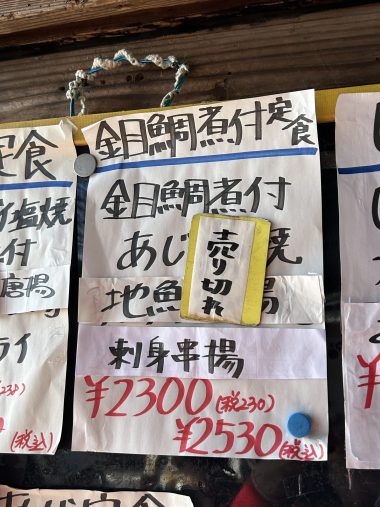 金目鯛煮付定食
金目鯛煮付
あじ
焼
売り切れ
地魚
揚
刺身串揚
¥2300(税230)
¥2530(税込)
定食
塩焼
付
唐揚
ライ
(税込)
¥